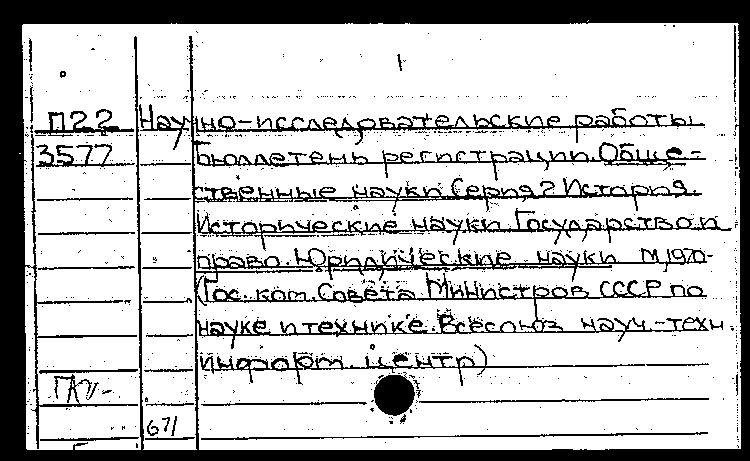 П22 Научно-исследовательские работы.
3577 Бюллетень регистрации. Обще-
ственные науки. Серия 2 История.
Исторические науки. Государство и
право. Юридические науки М, 1970-
(Гос. ком. Совета Министров СССР по
науке и технике. Всесоюз науч.-техн.
информ. центр)
671